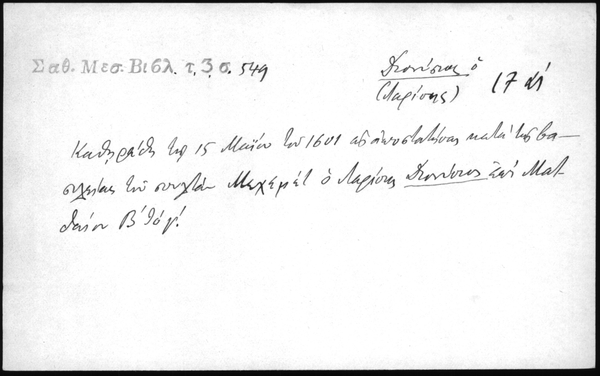 Σαθ. Μεσ. Βιβλ. τ. 3 σ. 549
Διονύσιος ὁ
(Λαρίσης) 17 αἰ
Καθῃρέθη τῇ 15 Μαΐου τοῦ 1601 ὡς ἀποστατήσας κατὰ τῆς βα-
σιλείας τοῦ σουλτὰν Μεχεμὲτ ὁ Λαρίσης Διονύσιος ἐπὶ Ματ
θαίου Β΄